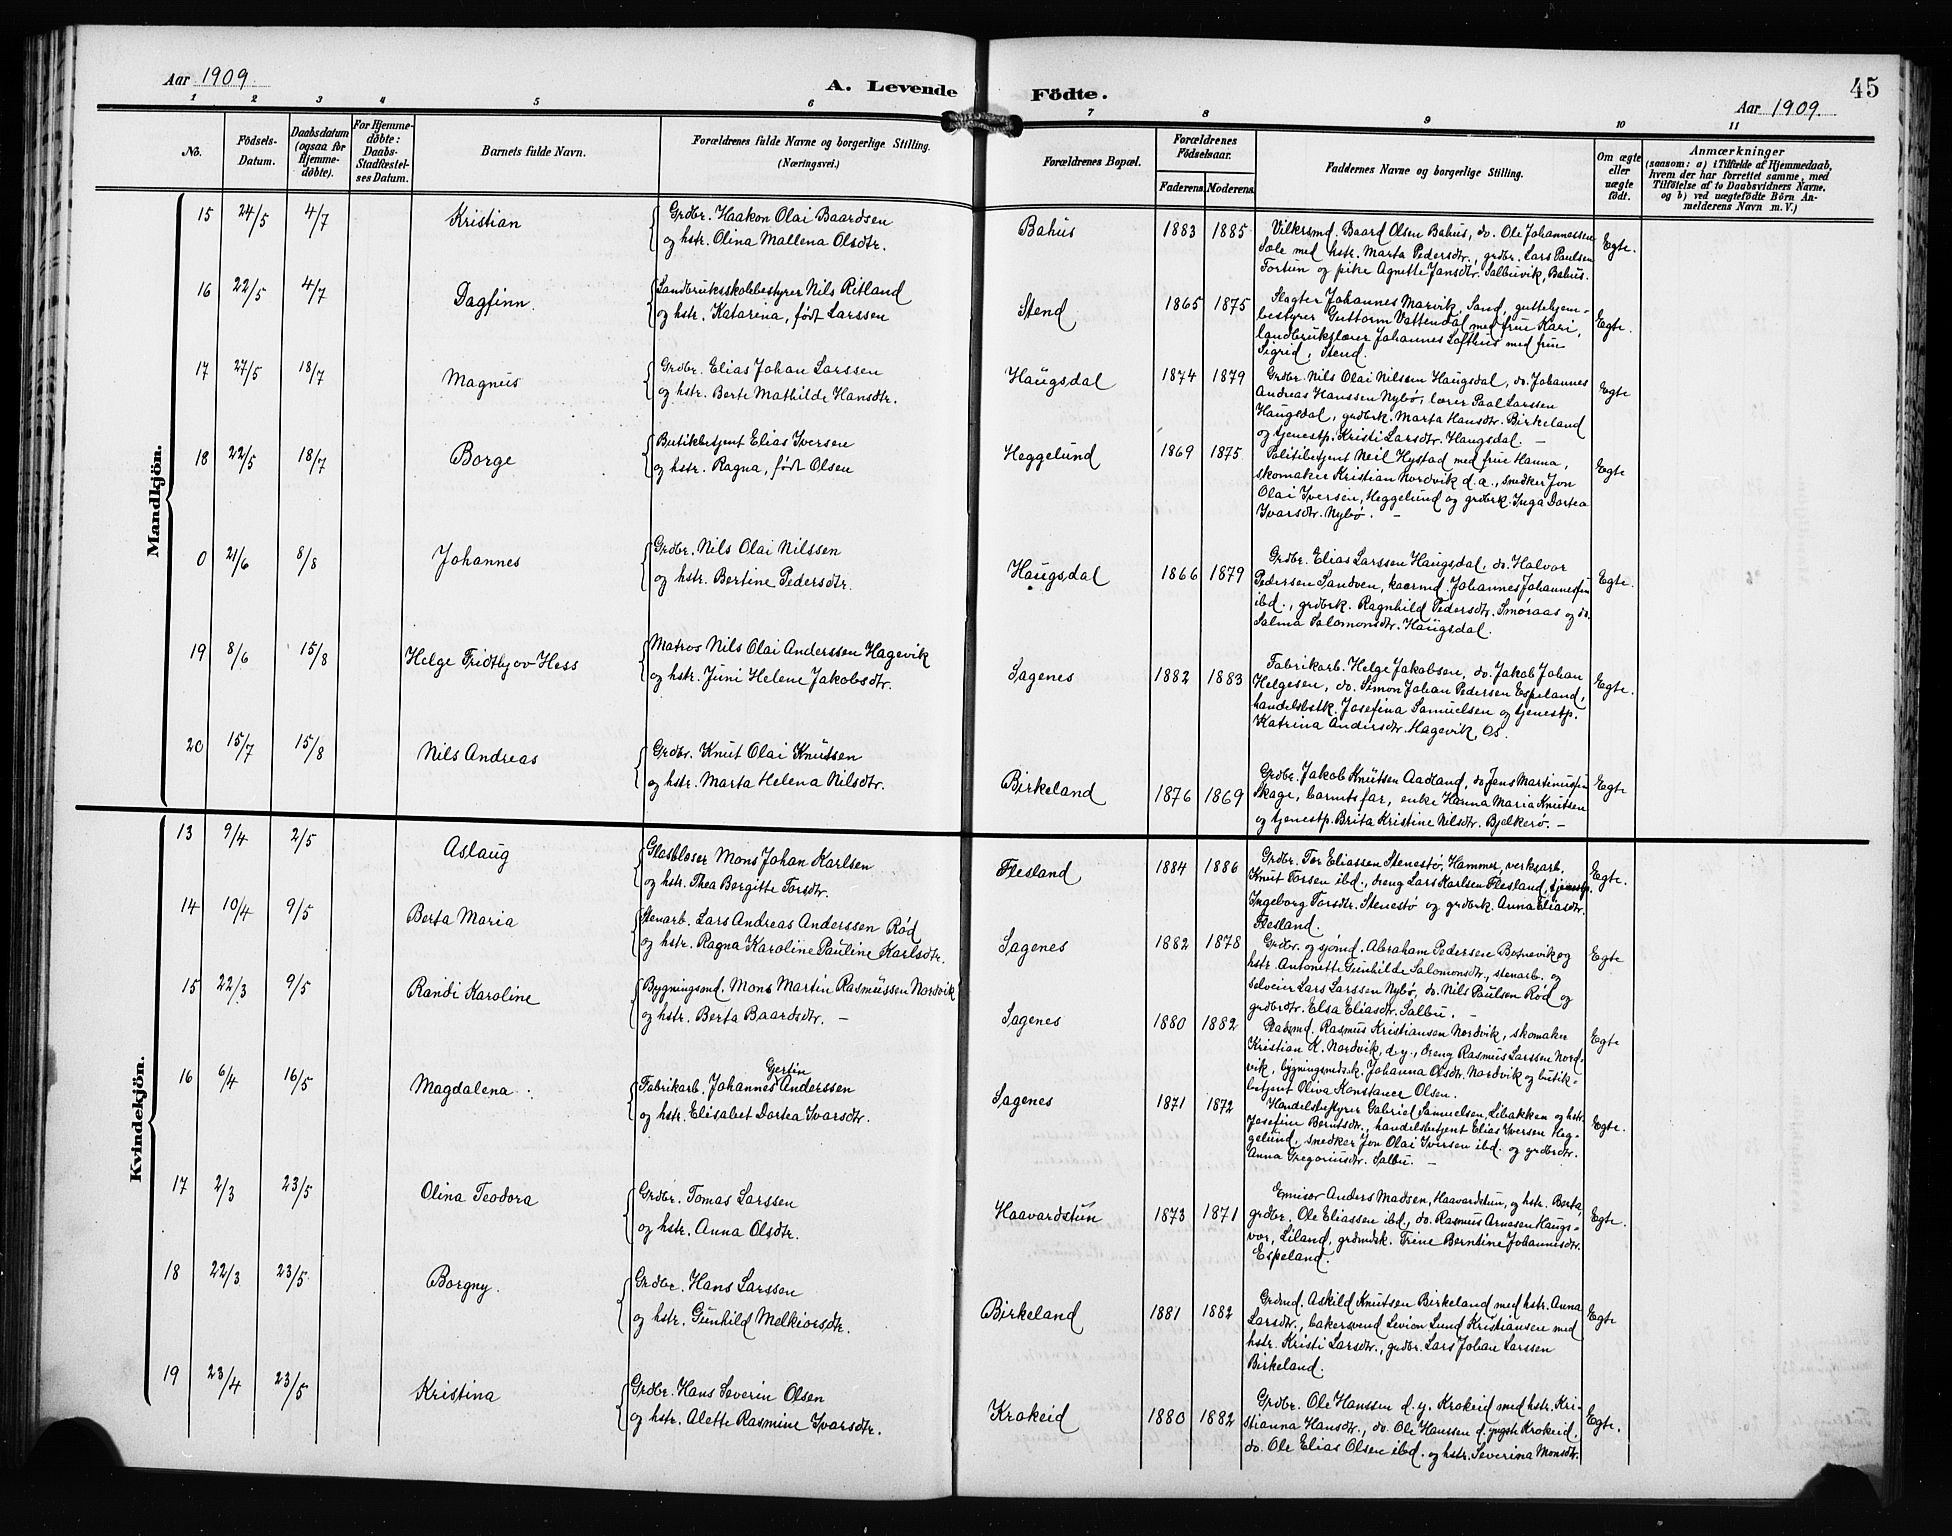 Aar 1909
A. Levende
Födte.
45
Aar 1909.
1 2 3 4 5 6 7 8 9 10 11
No.
Födsels-
Datum.
Daabsdatum
(ogsaa for
Hjemme-
döbte).
For Hjemme-
döbte:
Daabs-
Stadfæstel-
ses Datum.
Barnets fulde Navn.
Forældrenes fulde Navne og borgerlige Stilling.
(Næringsvei.)
Forældrenes Bopæl.
Forældrenes
Födselsaar.
Faderens. Moderens.
Faddernes Navne og borgerlige Stilling.
Om ægte
eller
uægte
födt.
Anmærkninger
(saasom: a) i Tilfælde af Hjemmedaab,
hvem der har forrettet samme, med
Tilföielse af to Daabsvidners Navne.
og b) ved uægtefödte Börn An-
melderens Navn m. V.)
Mandkjön.
15 24/5 4/7 Kristian
Grdbr. Haakon Olai Baardsen
og hstr. Olina Mallena Olsdtr.
Bahus 1883 1885
Vilkrsmd. Baard Olsen Bahus, do. Ole Johannessen
Dale med hstr. Marta Pedersdtr., grdbr. Lars Paulsen
Tortun og pike Agnette Jansdtr. Salbuvik, Bahus.
Egte.
16 22/5 4/7 Dagfinn.
Landbruksskolebestyrer Nils Ritland
og hstr. Katarina, født Larssen
Stend 1865 1875
Slagter Johannes Marvik, Sand, guttehjem-
bestyrer Guttorm Vattendal med frue Kari,
landbrukslærer Johannes Lofthus med frue
Sigrid, Stend.
Egte.
17 27/5 18/7 Magnus
Grdbr. Elias Johan Larssen
og hstr. Berte Mathilde Hansdtr.
Haugsdal 1874 1879
Grdbr. Nils Olai Nilssen Haugsdal, do. Johannes
Andreas Hanssen Nybø, lærer Paal Larssen
Haugsdal, grdbrk. Marta Hansdtr. Birkeland
og tjenestp. Kristi Larsdtr. Haugsdal. –
Egte
18 22/5 18/7 Borge
Butikbetjent Elias Iversen
og hstr. Ragna, født Olsen
Heggelund 1869 1875
Politibetjent Neil Hystad med frue Hanna,
skomaker Kristian Nordvik d.a., snedker Jon
Olai Iversen, Heggelund og grdbrk. Inga Dortea
Ivarsdtr. Nybø. –
Egte
0 21/6 8/8 Johannes
Grdbr. Nils Olai Nilssen
og hstr. Bertine Pedersdtr.
Haugsdal 1866 1879
Grdbr. Elias Larssen Haugsdal, do. Halvor
Pedersen Sandven, kaarmd. Johannes Johannessen
ibd., grdbrk. Ragnhild Pedersdtr. Smøraas og do.
Salma Salomonsdtr. Haugsdal.
Egte.
19 8/6 15/8 Helge Fridthjov Hess
Matros Nils Olai Anderssen Hagevik
og hstr. Juni Helene Jakobsdtr.
Sagenes 1882 1883
Fabrikarb. Helge Jakobsen, do. Jakob Johan
Helgesen, do. Simon Johan Pedersen Espeland,
handelsbetk. Josefina Samuelsen og tjenestp.
Katrina Andersdtr. Hagevik, Os.
Egte.
20 15/7 15/8 Nils Andreas
Grdbr. Knut Olai Knutsen
og hstr. Marta Helena Nilsdtr.
Birkeland 1876 1869
Grdbr. Jakob Knutsen Aadland, do. Jens Martinussen
Skage, barnets far, enke Hanna Maria Knutsen
og tjenestp. Brita Kristine Nilsdtr. Bjelkerø. –
Egte
Kvindekjön.
13 9/4 2/5 Aslaug
Glasbloser Mons Johan Karlsen
og hstr. Thea Bergitte Torsdtr.
Flesland 1884 1886
Grdbr. Tor Eliassen Stenestø, Hammer, verksarb.
Knut Torsen ibd., dreng Lars Karlsen Flesland, tjenestp.
Ingeborg Torsdtr. Stenestø og grdbrk. Anna Eliasdtr.
Flesland.
Egte.
14 10/4 9/5 Berta Maria
Stenarb. Lars Andreas Anderssen Rød
og hstr. Ragna Karoline Pauline Karlsdtr.
Sagenes 1882 1878
Grdbr. og sjømd. Abraham Pedersen Bognevik og
hstr. Antonette Gunhilde Salomonsdtr., stenarb. og
selveier Lars Larssen Nybø, do. Nils Paulsen Rød og
grdbrdtr. Elsa Eliasdtr. Salbu. –
Egte
15 22/3 9/5 Randi Karoline
Bygningsmd. Mons Martin Rasmussen Nordvik
og hstr. Berta Baardsdtr. –
Sagenes 1880 1882
Pladsmd. Rasmus Kristiansen Nordvik, skomaker
Kristian K. Nordvik, d.y., dreng Rasmus Larssen Nord-
vik, bygningsmdsk. Johanna Olsdtr. Nordvik og butik-
betjent Oliva Konstance Olsen.
Egte
16 6/4 16/5 Magdalena
Gertin
Fabrikarb. Johannes Anderssen
og hstr. Elisabet Dortea Ivarsdtr.
Sagenes 1871 1872
Handelsbestyrer Gabriel Samuelsen, Libakken og hstr.
Josefine Berntsdtr., handelsbetjent Elias Iversen Heg-
gelund, snedker Jon Olai Iversen ibd. og grdbrdtr.
Anna Gregoriusdtr. Salbu. –
Egte.
17 2/3 23/5 Olina Teodora
Grdbr. Tomas Larssen
og hstr. Anna Olsdtr.
Haavardstun 1873 1871
Emisær Anders Madsen, Haavardstun, og hstr. Berta,
grdbr. Ole Eliassen ibd., do. Rasmus Arnesen Haugs-
vor, Liland, grdmdsk. Trine Berntine Johannesdtr.
Espeland.
Egte.
18 22/3 23/5 Borgny.
Grdbr. Hans Larssen
og hstr. Gunhild Melkiorsdtr.
Birkeland 1881 1882
Grdmd. Askild Knutsen Birkeland med hstr. Anna
Larsdtr., bakersvend Levion Lund Kristiansen med
hstr. Kristi Larsdtr., grdbr. Lars Johan Larssen
Birkeland.
Egte
19 23/4 23/5 Kristina
Grdbr. Hans Severin Olsen
og hstr. Alette Rasmine Ivarsdtr.
Krokeid 1880 1882
Grdbr. Ole Hanssen d.y. Krokeid med hstr. Kri-
stianna Hansdtr., do. Ole Hanssen d. yngste Krokeid,
do. Ole Elias Olsen ibd. og hstr. Severina Monsdtr.
Egte.